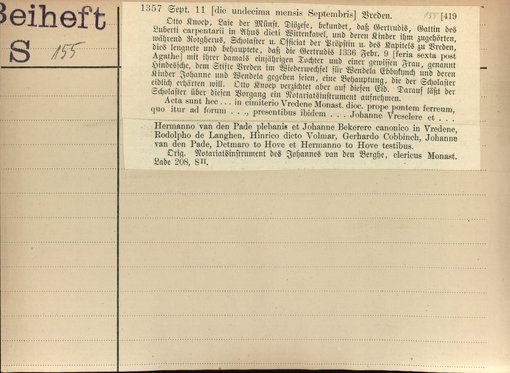 Beiheft
S 155
1357 Sept. 11 [die undecima mensis Septembris] Vreden. 155 [419
Otto Knoep, Laie der Münst. Diözese, bekundet, daß Gertrudis, Gattin des
Luberti carpentarii in Rhus dicti Wittenkavel, und deren Kinder ihm zugehörten,
während Rotgherus, Scholaster u. Offizial der Pröpstin u. des Kapitels zu Vreden,
dies leugnete und behauptete, daß die Gertrudis 1336 Febr. 9 [feria sexta post
Agathe] mit ihrer damals einjährigen Tochter und einer gewissen Frau, genannt
dem Stifte Vreden im Wiederwechsel für Wendela und deren
Kinder Johanne und Wendela gegeben seien, eine Behauptung, die der Scholaster
eidlich erhärten will. Otto Knoep verzichtet aber auf diesen Eid. Darauf läßt der
Scholaster über diesen Vorgang ein Notariatsinstrument aufnehmen.
Acta sunt hec . . . in cimiterio Vredene Monast. dioc. prope pontem ferreum,
quo itur ad forum . . ., presentibus ibidem . . . Johanne Vreselere et . . .
Hermanno van den Pade plebanis et Johanne Bekerere canonico in Vredene,
Rodolpho de Langhen, Hinrico dicto Volmar, Gerhardo Cobbinch, Johanne
van den Pade, Detmaro to Hove et Hermanno to Hove testibus.
Orig. Notariatsinstrument des Johannes van den Berghe, clericus Monast.
Lade 208, 8 II.